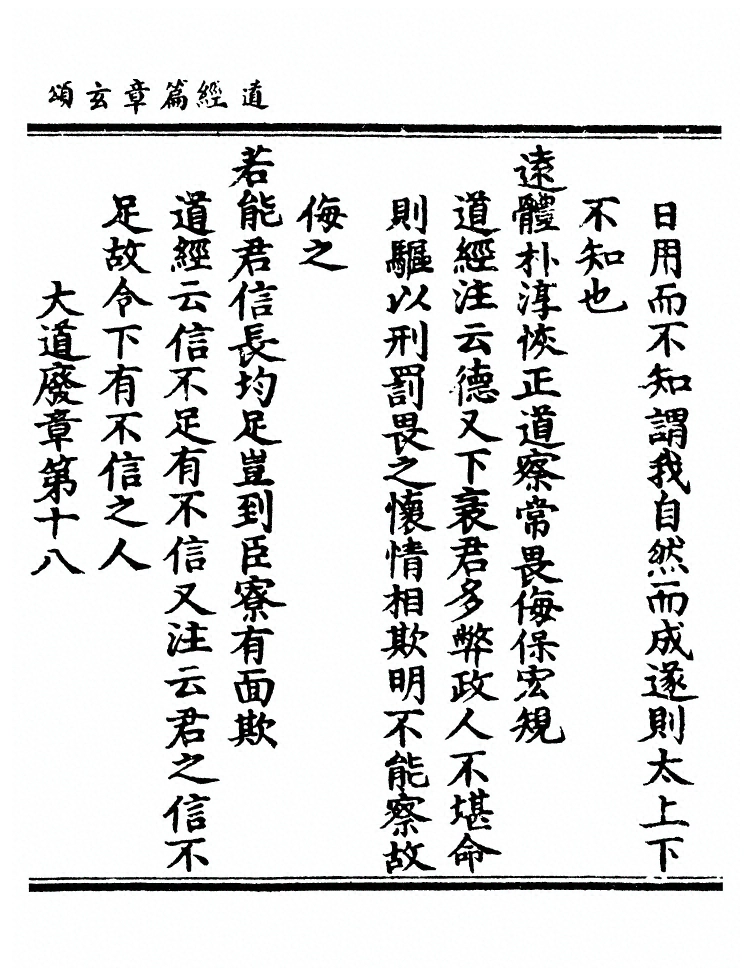 道經篇章玄頌
日用而不知謂我自然而成遂則太上下
不知也
遠體朴淳恢正道察常畏侮保宏規
道經注云德又下衰君多弊政人不堪命
則驅以刑罰畏之懷情相欺明不能察故
侮之
若能君信長均足豈到臣寮有面欺
道經云信不足有不信又注云君之信不
足故令下有不信之人
大道廢章第十八